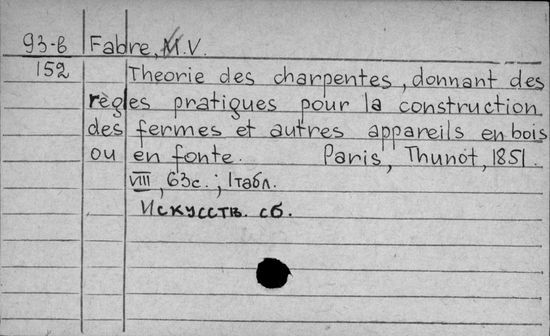 93-б Fabre, M.V.
152 Theorie des charpentes, donnant des
règles pratiques pour la construction
des fermes et autres appareils en bois
ou en fonte. Paris, Thunot, 1851.
VIII, 63 с.; 1 табл.
Искусств. сб.